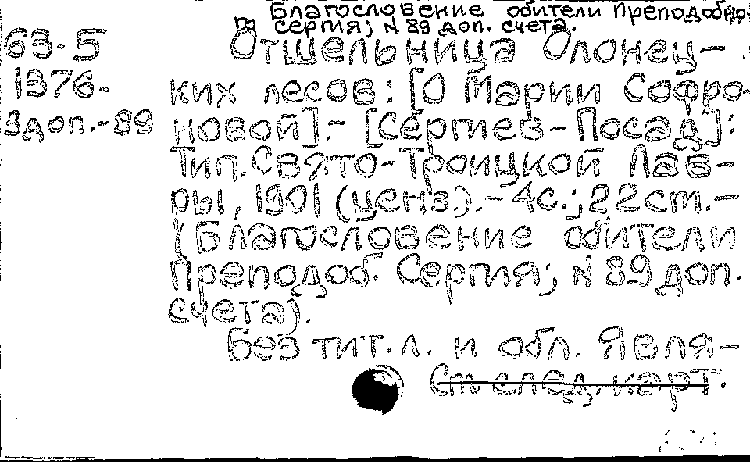 Благословение обители Преподобно-
Сергия; N 89 доп. счета.
63-5 Отшельница Олонец-
1376- ких лесов: [О Марии Софро-
3доп.-89 новой].- [Сергиев-Посад]:
Тип. Свято-Троицкой Лав-
ры, 1901 (ценз).- 4с.; 22см.-
(Благословение обители
Преподоб. Сергия; N 89 доп.
счета).
Без тит. л. и обл. Явля-
См след. карт.